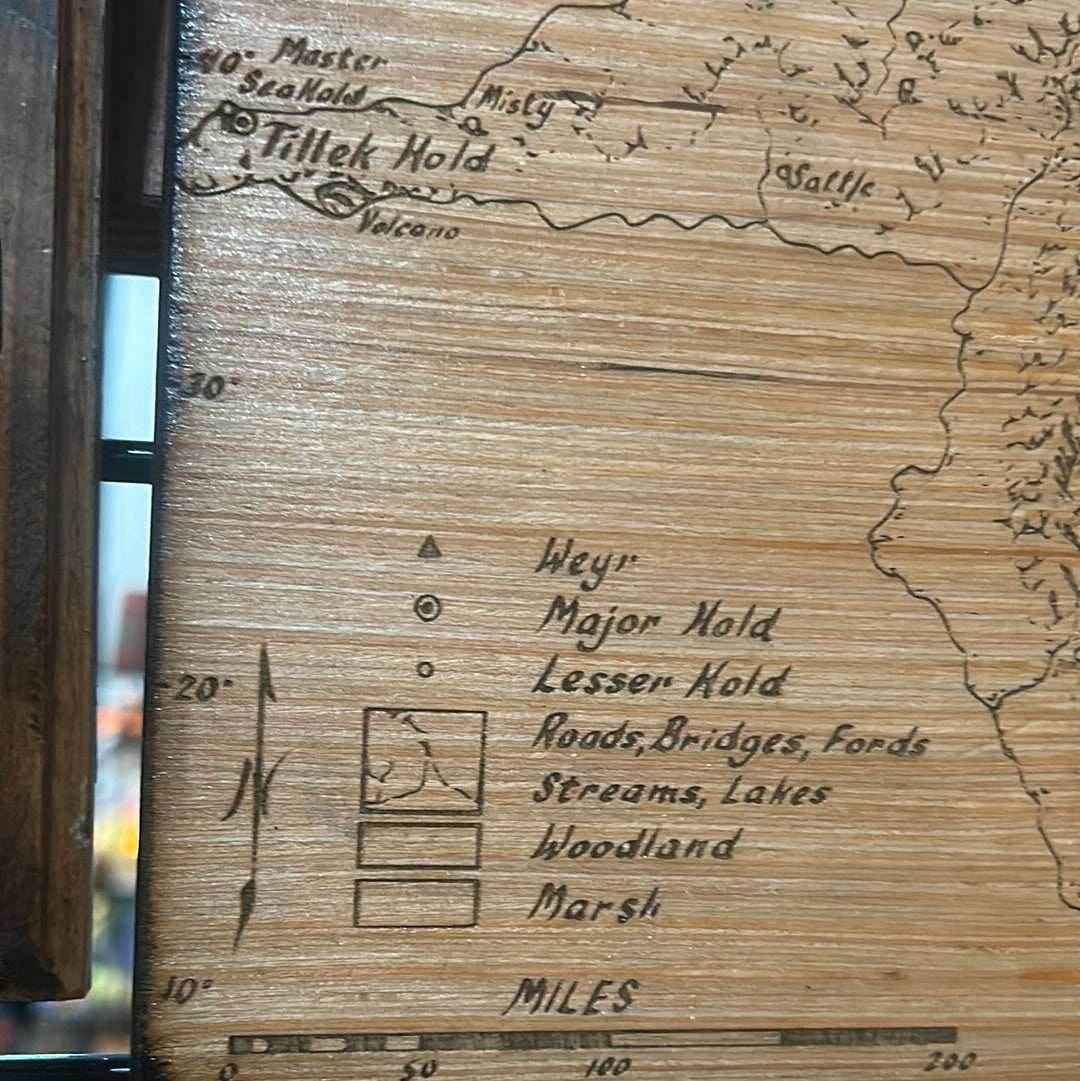 40° Master
SeaHold
Misty
Tillek Hold
Volcano
30°
Weyr
Major Hold
Lesser Hold
20°
Roads, Bridges, Fords
Streams, Lakes
N
Woodland
Marsh
10°
MILES
0 50 100 200